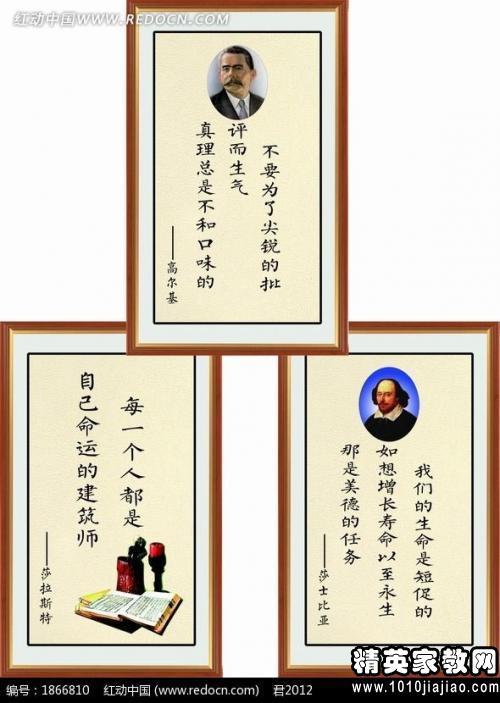 红动中国 www.redocn.com
WWW.REDOCN.COM
不要为了尖锐的批
评而生气
真理总是不和口味的
——高尔基
每一个人都是
自己命运的建筑师
——莎拉斯特
我们的生命是短促的
如想增长寿命以至永生
那是美德的任务
——莎士比亚
编号：1866810 红动中国 (www.redocn.com) 君2012
精英家教网
www.1010jiajiao.com